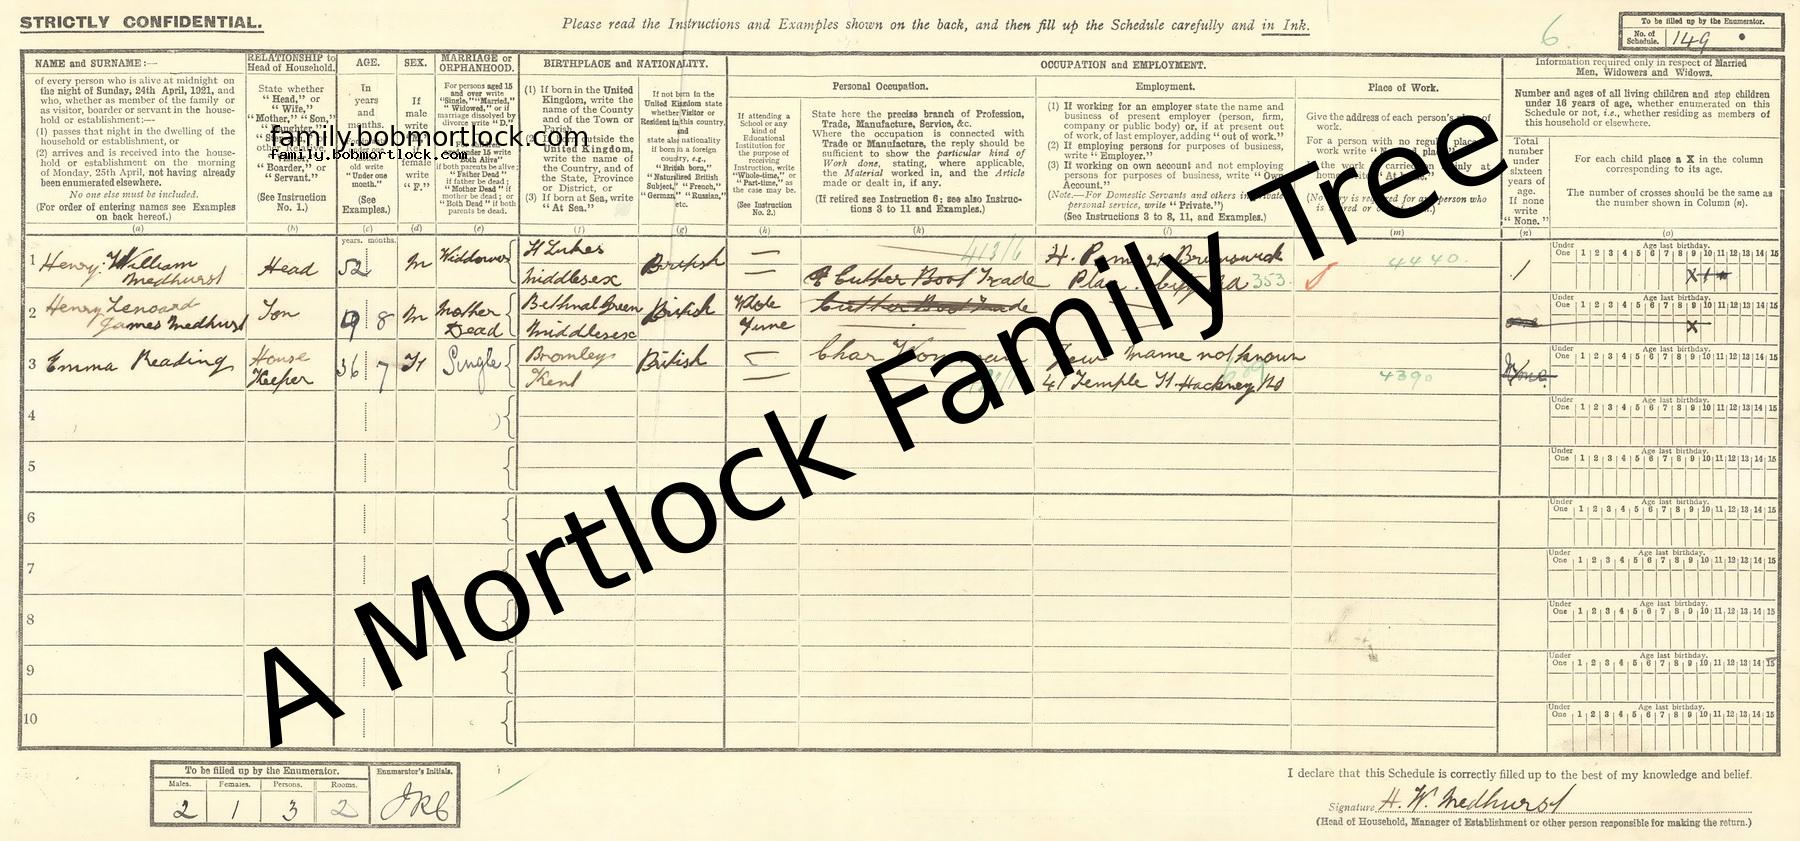 STRICTLY CONFIDENTIAL.
Please read the Instructions and Examples shown on the back, and then fill up the Schedule carefully and in Ink.
6
To be filled up by the Enumerator.
No. of Schedule. 149
NAME and SURNAME:—
of every person who is alive at midnight on
the night of Sunday, 24th April, 1921, and
who, whether as member of the family or
as visitor, boarder or servant in the house-
hold or establishment:—
(1) passes that night in the dwelling of the
household or establishment, or
(2) arrives and is received into the house-
hold or establishment on the morning
of Monday, 25th April, not having already
been enumerated elsewhere.
No one else must be included.
(For order of entering names see Examples
on back hereof.)
(a)
RELATIONSHIP to
Head of Household.
State whether
"Head," or
"Wife,"
"Mother," "Son,"
"Boarder," or
"Servant."
(See Instruction
No. 1.)
(b)
AGE.
In
years
and
months.
"Under one
month."
(See
Examples.)
(c)
years. months.
SEX.
If
male
write
female
write
"F."
(d)
MARRIAGE or
ORPHANHOOD.
For persons aged 15
and over write
"Single," "Married,"
"Widowed," or if
marriage dissolved by
divorce write "D."
"Father Dead"
if father be dead;
"Mother Dead" if
mother be dead; or
"Both Dead" if both
parents be dead.
(e)
BIRTHPLACE and NATIONALITY.
(1) If born in the United
Kingdom, write the
name of the County
and of the Town or
Parish.
United Kingdom,
write the name of
the Country, and of
the State, Province
or District, or
(3) If born at Sea, write
"At Sea."
(f)
If not born in the
United Kingdom state
whether Visitor or
Resident in this country,
and
state also nationality
if born in a foreign
country, e.g.,
"British born,"
"Naturalized British
Subject," "French,"
"German," "Russian,"
etc.
(g)
OCCUPATION and EMPLOYMENT.
If attending a
School or any
kind of
Educational
Institution for
the purpose of
receiving
instruction, write
"Whole-time," or
"Part-time," as
the case may be.
(See Instruction
No. 2.)
(h)
Personal Occupation.
State here the precise branch of Profession,
Trade, Manufacture, Service, &c.
Where the occupation is connected with
Trade or Manufacture, the reply should be
sufficient to show the particular kind of
Work done, stating, where applicable,
the Material worked in, and the Article
made or dealt in, if any.
(If retired see Instruction 6; see also Instruc-
tions 3 to 11 and Examples.)
(k)
Employment.
(1) If working for an employer state the name and
business of present employer (person, firm,
company or public body) or, if at present out
of work, of last employer, adding "out of work."
(2) If employing persons for purposes of business,
write "Employer."
(3) If working on own account and not employing
persons for purposes of business, write "Own
Account."
(Note.—For Domestic Servants and others in private
personal service, write "Private.")
(See Instructions 3 to 8, 11, and Examples.)
(l)
Place of Work.
Give the address of each person's place of
work.
For a person with no regular place of
(m)
Information required only in respect of Married
Men, Widowers and Widows.
Number and ages of all living children and step children
under 16 years of age, whether enumerated on this
Schedule or not, i.e., whether residing as members of
this household or elsewhere.
Total
number
under
sixteen
years of
age.
If none
write
"None."
(n)
For each child place a X in the column
corresponding to its age.
The number of crosses should be the same as
the number shown in Column (n).
(o)
1 Henry. William Medhurst Head 52 M Widdower St Lukes Middlesex British — — 413/6 Cutter Boot Trade H. 353 4440 1 X
2 Henry Lenoard James Medhurst Son 9 8 M Mother Dead Bethnal Green Middlesex British Whole Time Cutter Boot Trade X
3 Emma Reading House Keeper 36 7 F Single Bromley Kent British Char Name not known 41 Temple St. Hackney Rd 4390 None
4
5
6
7
8
9
10
Under One Age last birthday. 1 2 3 4 5 6 7 8 9 10 11 12 13 14 15
family.bobmortlock.com
family.bobmortlock.com
A Mortlock Family Tree
To be filled up by the Enumerator.
Males. Females. Persons. Rooms.
2 1 3 2
Enumerator's Initials.
I declare that this Schedule is correctly filled up to the best of my knowledge and belief.
Signature H. W. Medhurst
(Head of Household, Manager of Establishment or other person responsible for making the return.)